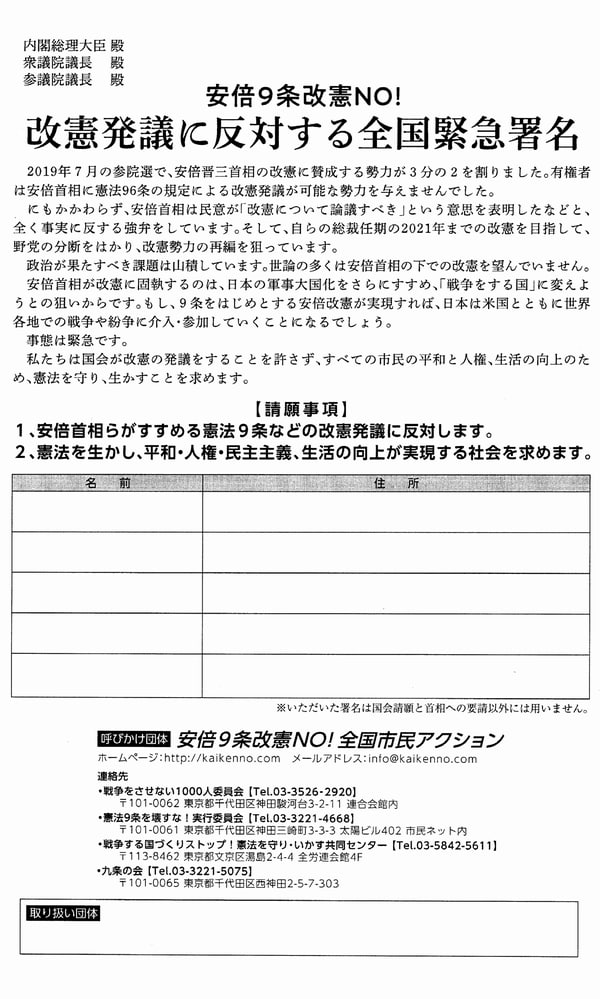 内閣総理大臣 殿
衆議院議長 殿
参議院議長 殿
安倍9条改憲NO!
改憲発議に反対する全国緊急署名
2019年7月の参院選で、安倍晋三首相の改憲に賛成する勢力が3分の2を割りました。有権者
は安倍首相に憲法96条の規定による改憲発議が可能な勢力を与えませんでした。
にもかかわらず、安倍首相は民意が「改憲について論議すべき」という意思を表明したなどと、
全く事実に反する強弁をしています。そして、自らの総裁任期の2021年までの改憲を目指して、
野党の分断をはかり、改憲勢力の再編を狙っています。
政治が果たすべき課題は山積しています。世論の多くは安倍首相の下での改憲を望んでいません。
安倍首相が改憲に固執するのは、日本の軍事大国化をさらにすすめ、「戦争をする国」に変えよ
うとの狙いからです。もし、9条をはじめとする安倍改憲が実現すれば、日本は米国とともに世界
各地での戦争や紛争に介入・参加していくことになるでしょう。
事態は緊急です。
私たちは国会が改憲の発議をすることを許さず、すべての市民の平和と人権、生活の向上のた
め、憲法を守り、生かすことを求めます。
【請願事項】
1、安倍首相らがすすめる憲法9条などの改憲発議に反対します。
2、憲法を生かし、平和・人権・民主主義、生活の向上が実現する社会を求めます。
名 前 住 所
※いただいた署名は国会請願と首相への要請以外には用いません。
呼びかけ団体 安倍9条改憲NO! 全国市民アクション
ホームページ:http://kaikenno.com メールアドレス:info@kaikenno.com
連絡先
・戦争をさせない1000人委員会【Tel.03-3526-2920】
〒101-0062 東京都千代田区神田駿河台3-2-11 連合会館内
・憲法9条を壊すな!実行委員会【Tel.03-3221-4668】
〒101-0061 東京都千代田区神田三崎町3-3-3 太陽ビル402 市民ネット内
・戦争する国づくりストップ!憲法を守り・いかす共同センター【Tel.03-5842-5611】
〒113-8462 東京都文京区湯島2-4-4 全労連会館4F
・九条の会【Tel.03-3221-5075】
〒101-0065 東京都千代田区西神田2-5-7-303
取り扱い団体